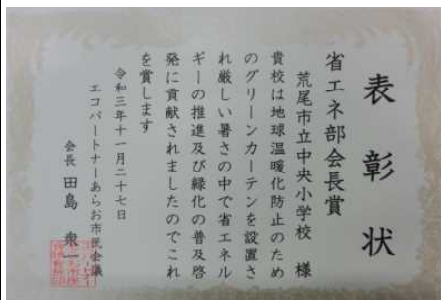 表彰状
省エネ部会長賞
荒尾市立中央小学校 様
貴校は地球温暖化防止のため
のグリーンカーテンを設置さ
れ厳しい暑さの中で省エネル
ギーの推進及び緑化の普及啓
発に貢献されましたのでこれ
を賞します
令和三年十一月二十七日
エコパートナーあらお市民会議
会長 田島 衆一